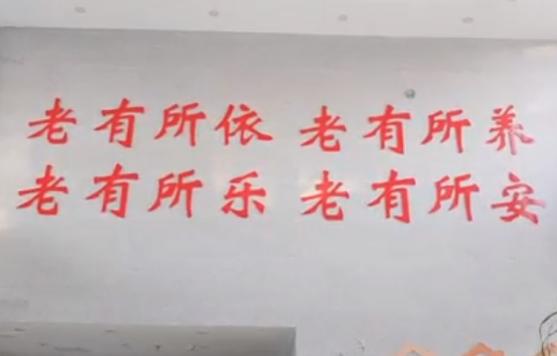 老有所依 老有所养
老有所乐 老有所安